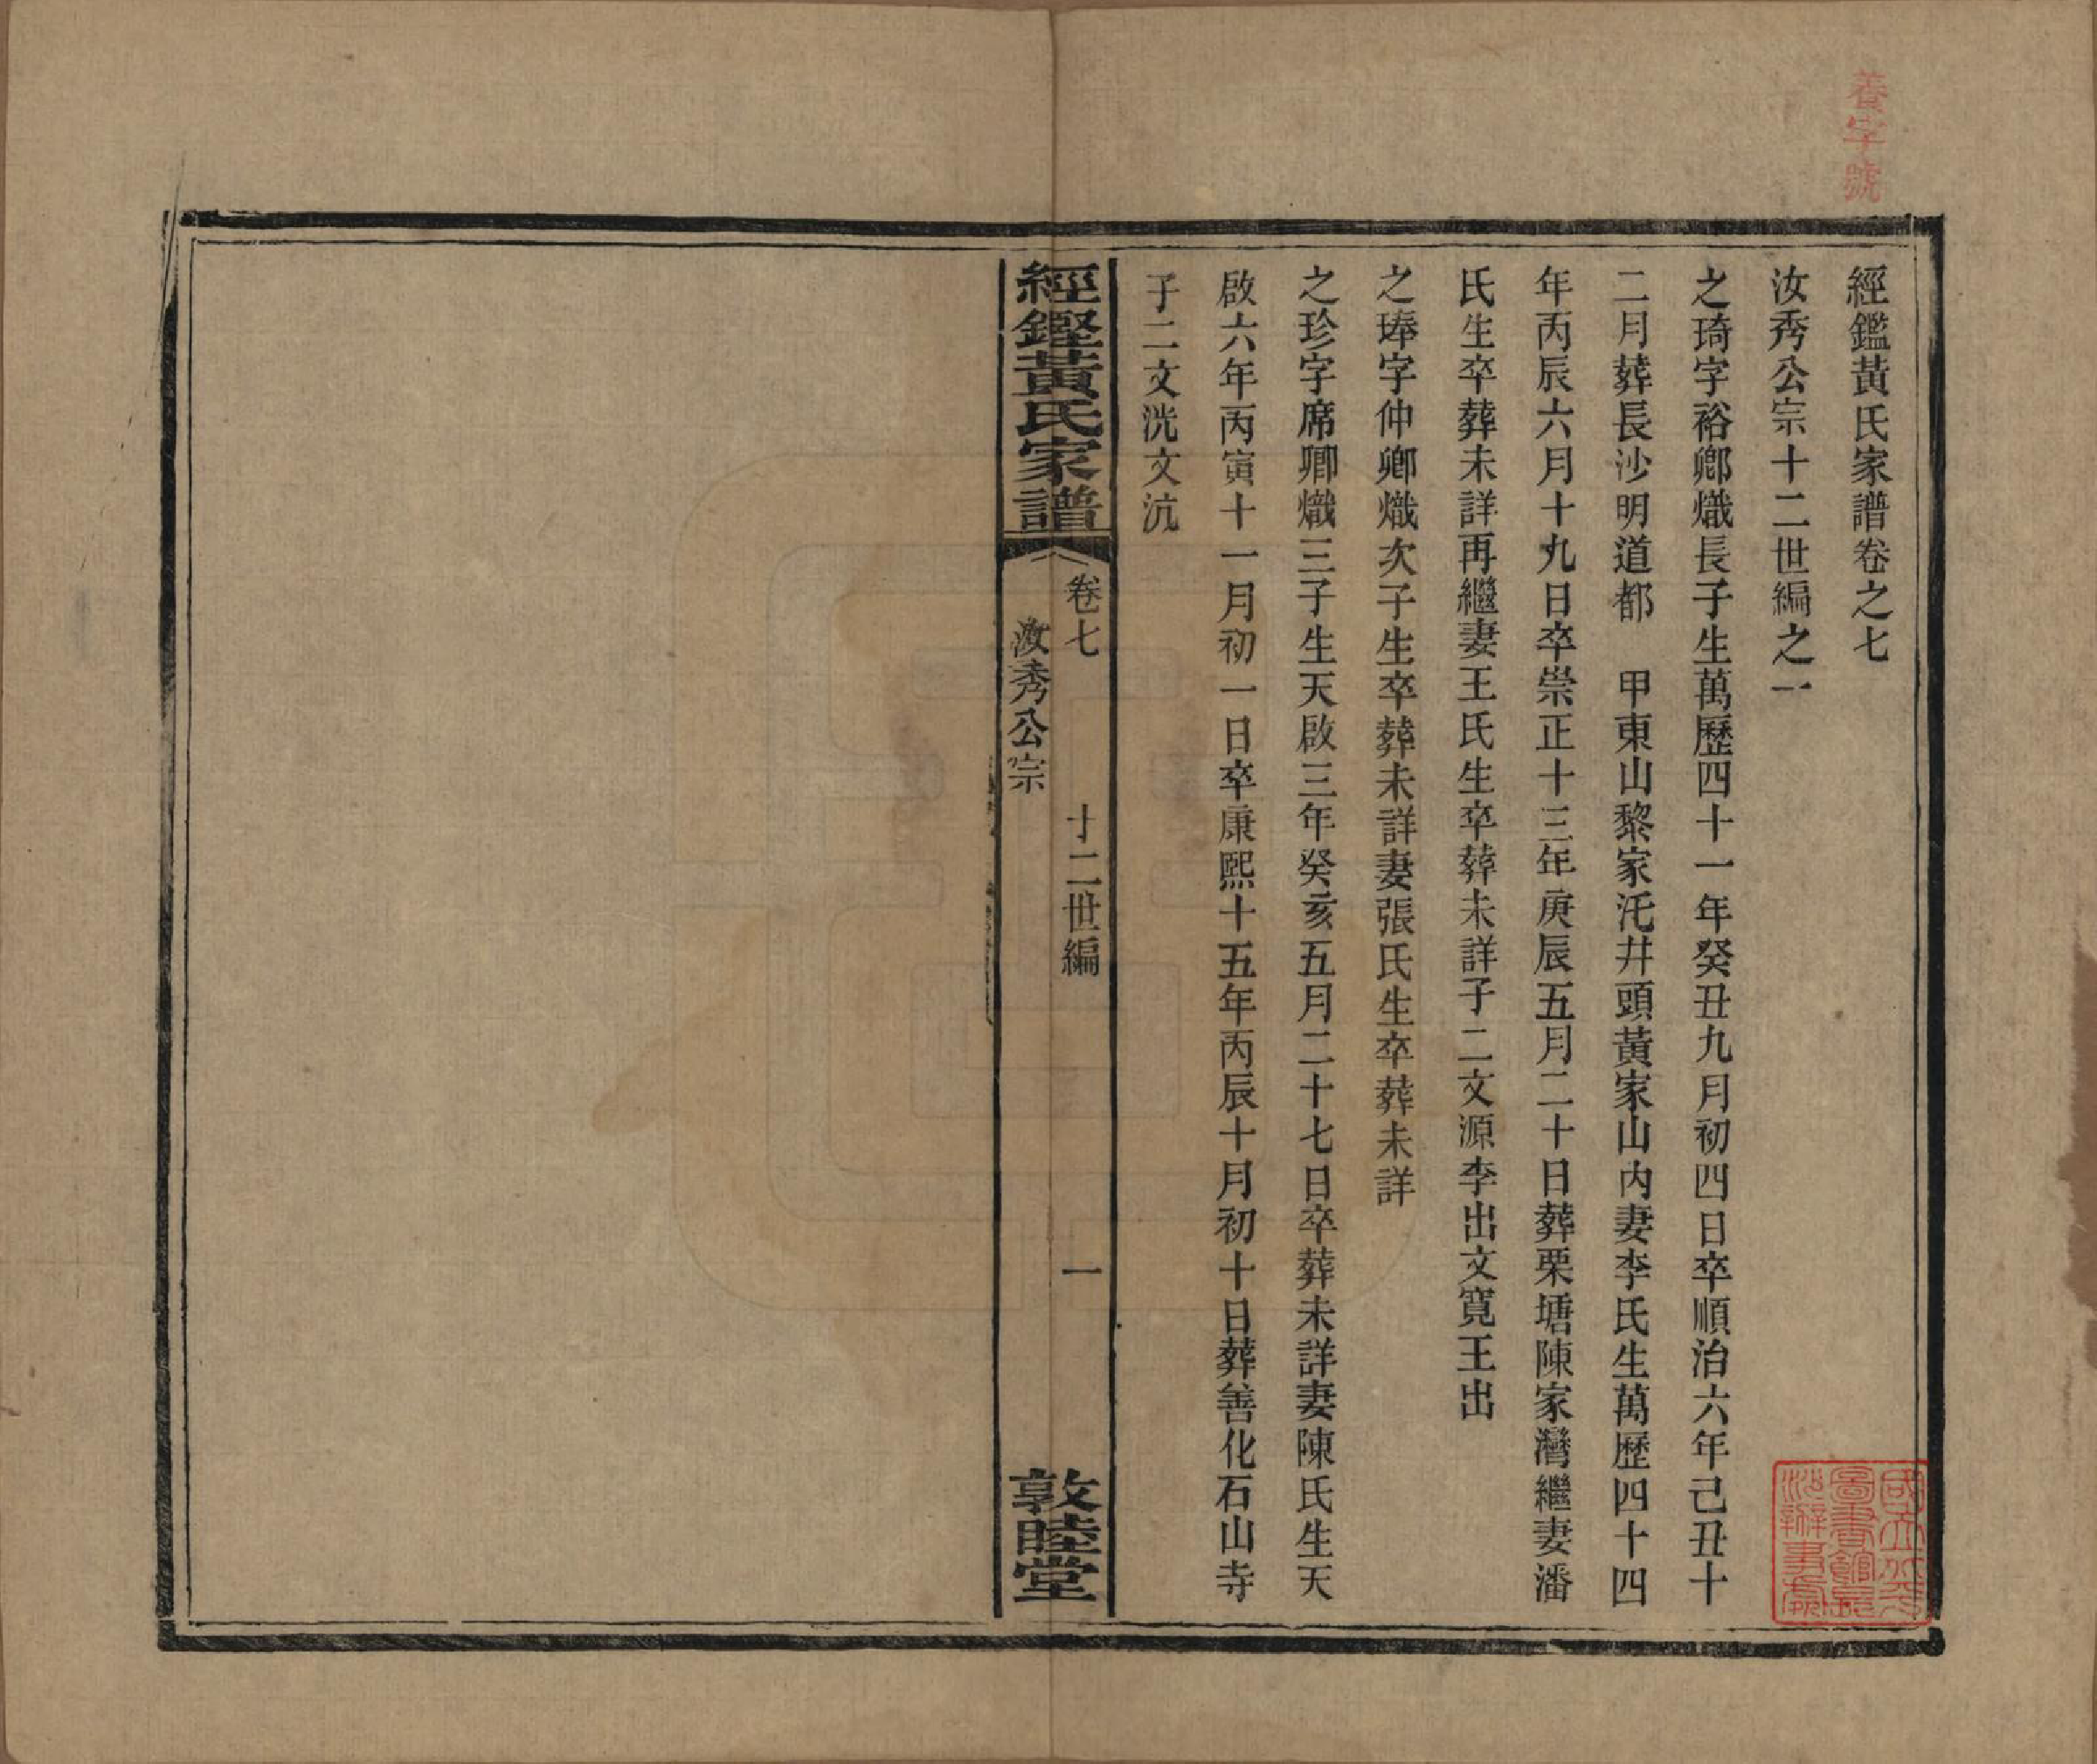 養字號
經鑑黃氏家譜卷之七
汝秀公宗十二世編之一
之琦字裕鄉熾長子生萬歷四十一年癸丑九月初四日卒順治六年己丑十
二月葬長沙明道都　甲東山黎家汑井頭黃家山內妻李氏生萬歷四十四
年丙辰六月十九日卒崇正十三年庚辰五月二十日葬栗塘陳家灣繼妻潘
氏生卒葬未詳再繼妻王氏生卒葬未詳子二文源李出文寬王出
之琫字仲鄉熾次子生卒葬未詳妻張氏生卒葬未詳
之珍字席卿熾三子生天啟三年癸亥五月二十七日卒葬未詳妻陳氏生天
啟六年丙寅十一月初一日卒康熙十五年丙辰十月初十日葬善化石山寺
子二文洸文沆
經鏗黃氏家譜
卷七
十二世編
一
汝秀公宗
敦睦堂
國立北平
圖書館長
沙辦事處